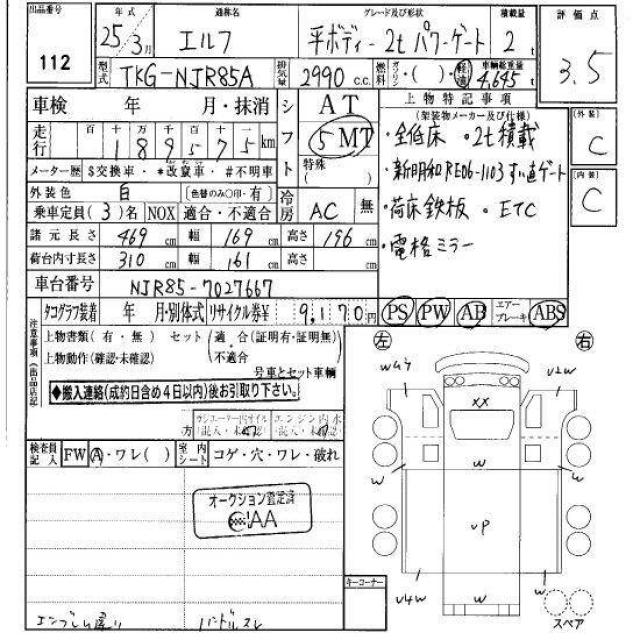 出品番号 年式 通称名 グレード及び形状 積載量 評価点
112 25年3月 エルフ 平ボディー 2t パワーゲート 2t 3.5
型式 TKG-NJR85A 排気量 2990 c.c. 燃料 ガソリン・( )・軽油 車輌総重量 4,645
車検 年 月・抹消 シフト AT
5 MT
特殊( )
走行 百 十 万 千 百 十
189575 km
メーター歴 $交換車・*改竄車・#不明車
外装色 白 (色替のみ○印・有)
冷房 AC 無
乗車定員(3)名 NOX 適合・不適合
諸元長さ 469 cm 幅 169 cm 高さ 196 cm
荷台内寸長さ 310 cm 幅 161 cm 高さ cm
車台番号 NJR85-7027667
上物特記事項
(架装物メーカー及び仕様)
・全低床 ・2t積載
・新明和RE06-1103すい直ゲート
・荷床鉄板 ・ETC
・電格ミラー
(外装)
C
(内装)
C
PS PW AB エアーブレーキ ABS
注意事項(出品店記)
タコグラフ装着 年 月・別体式 リサイクル券¥ 9,170円
上物書類(有・無) セット 適合(証明有・証明無)
・不適合
上物動作(確認・未確認)
号車とセット車輌
◆搬入連絡(成約日含め4日以内)後お引取り下さい。
検査員記入 FW A・ワレ( ) 室内シート コゲ・穴・ワレ・破れ
オークション査定済
AA
キーコーナー
左 右
XX
W
W W
UP
U4W W W
スペア